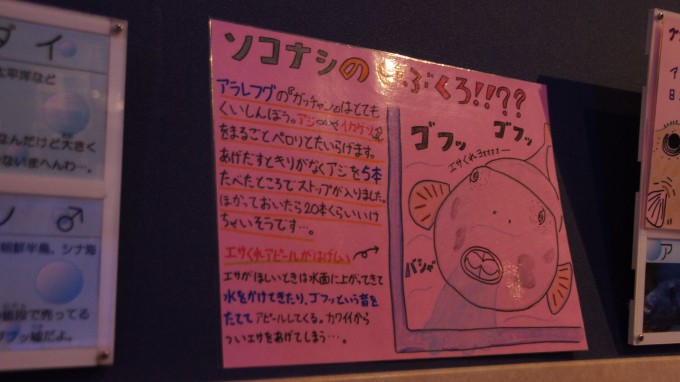 ダイ
太平洋など
なんだけど大きく
ないまへんわ…。
ノ ♂
朝鮮半島、シナ海
値段で売ってる
ププッ嘘だよ。
ソコナシの ぶくろ!!??
アラレフグの『ガッチャン』はとても
くいしんぼう。アジやイカゲソ
をまるごとペロリとたいらげます。
あげだすときりがなくアジを5本
たべたところでストップが入りました。
ほがっておいたら20本くらいいけ
ちゃいそうです…。
エサくれアピールがはげしい
エサがほしいときは水面に上がってきて
水をかけてきたり、ゴフッという音を
たててアピールしてくる。カワイイから
ついエサをあげてしまう…。
ゴフッ ゴフッ
エサくれ
バシャ
ア